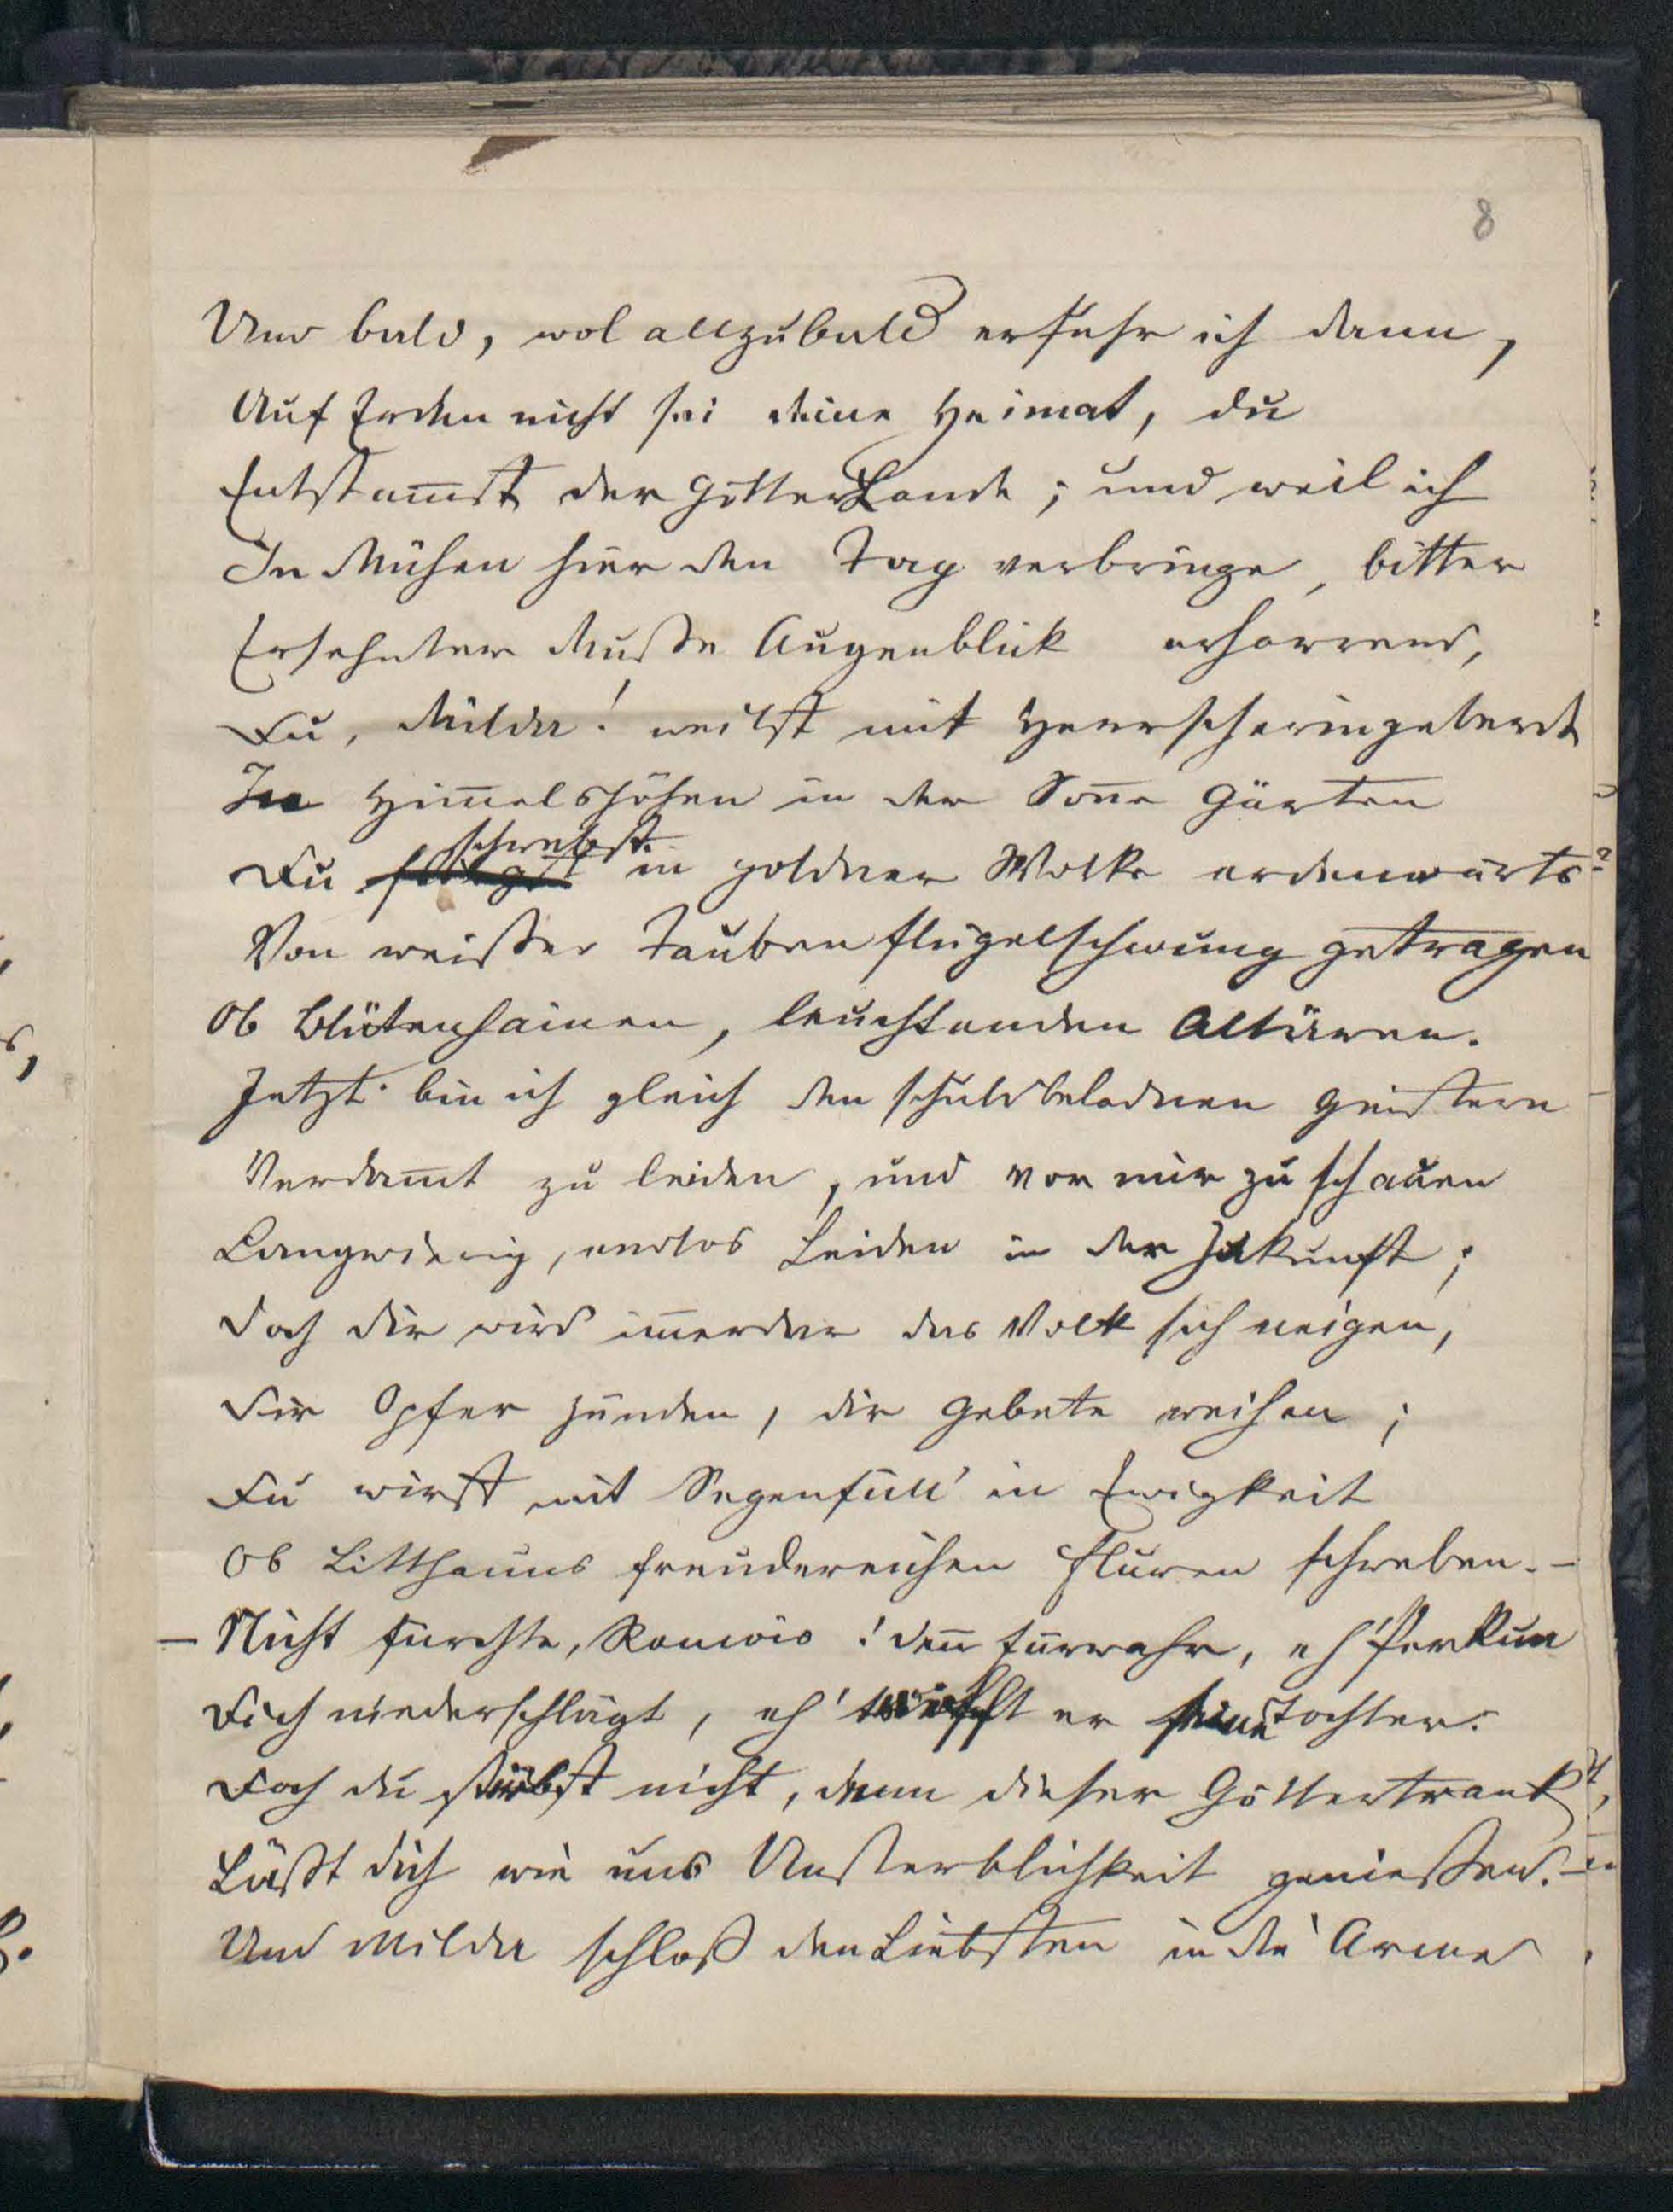 8
Und bald, wol allzubald erfuhr ich dann,
Auf Erden nicht sei deine Heimat, du
Entstam̅st der Götter Lande; und weil ich
In Mühen hier den Tag verbringe, bitter
Ersehnter Muße Augenblick erharrend,
Du, Milda! weilst mit Herrscheringeberde
In Him̅elshöhen in der Son̅e Gärten
schwebst
Du in goldner Wolke erdenwärts
Von weißer Tauben flügelschwung getragen
Ob Blütenhainen, leuchtenden Altären.
Jetzt bin ich gleich den schuldbeladnen Geistern
Verdam̅t zu leiden, und vor mir zu schauen
Langwierig, endlos Leiden in der Zukunft;
Doch dir wird im̅erdar das Volk sich neigen,
Dir Opfer zünden, dir Gebete weihen;
Du wirst mit Segenfüll' in Ewigkeit
Ob Litthauns freudereichen Fluren schweben. –
– Nicht fürchte, Romois! den̅ fürwahr, eh' Perkun
Dich niederschlägt, eh' trifft er seine Tochter.
Doch du stirbst nicht, denn dieser Göttertrank
Läßt dich wie uns Unsterblichkeit genießen. –
Und Milda schloß den Liebsten in die Arme